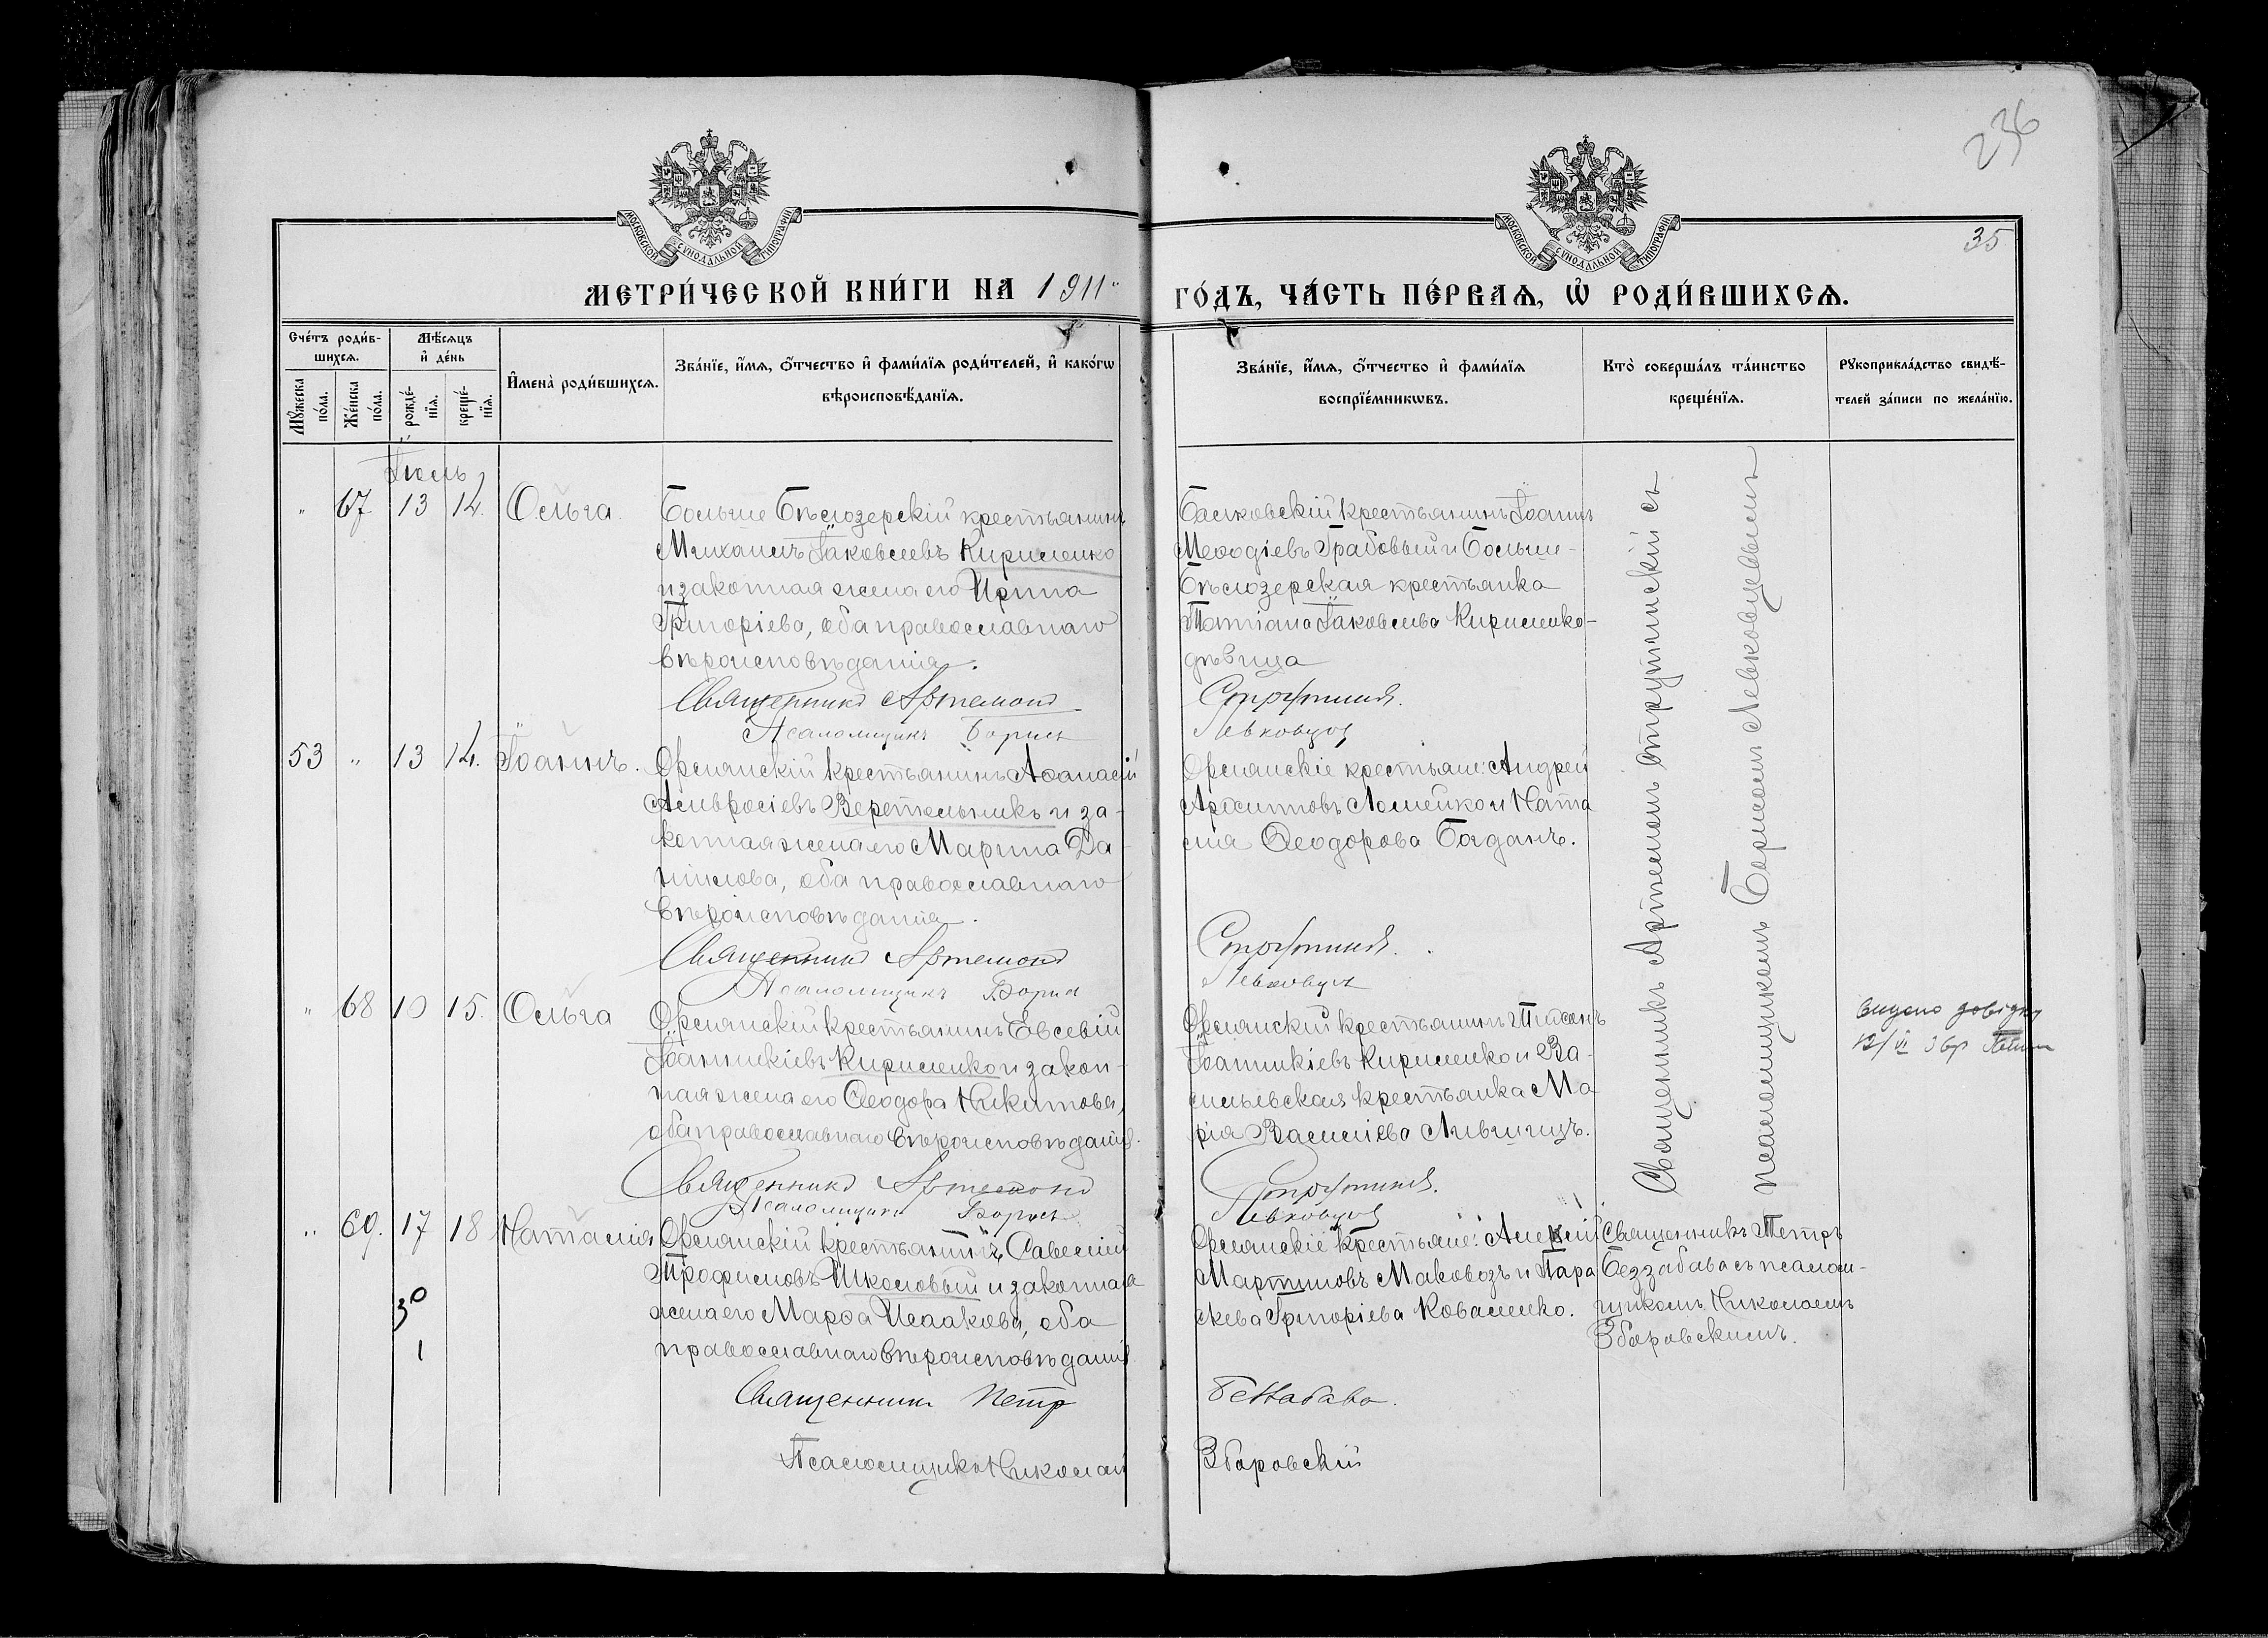 236
35
МОСКОВСКОЙ СУНОДАЛЬНОЙ ТИПОГРАФІИ
МОСКОВСКОЙ СУНОДАЛЬНОЙ ТИПОГРАФІИ
МЕТРИ́ЧЕСКОЙ КНИ́ГИ НА 1911
ГО́ДЪ, ЧА́СТЬ ПЕ́РВАѦ, Ѡ҆ РОДИ́ВШИХСѦ.
Сче́тъ роди́в-
шихсѧ.
Мꙋ́жеска
по́ла.
Же́нска
по́ла.
Мѣ́сѧцъ
и҆ де́нь
рожде́-
нїѧ.
креще́-
нїѧ.
И҆мена̀ роди́вшихсѧ.
Зва́нїе, и҆́мѧ, ѻ҆́тчество и҆ фами́лїѧ роди́телей, и҆ како́гѡ
вѣроисповѣ́данїѧ.
Зва́нїе, и҆́мѧ, ѻ҆́тчество и҆ фами́лїѧ
воспрїе́мникѡвъ.
Кто̀ соверша́лъ та́инство
креще́нїѧ.
Рꙋкоприкла́дство свидѣ́-
телей за́писи по жела́нїю.
Іюль
" 67 13 14. Ольга.
Больше Бѣлозерскій крестьянинъ
Михаилъ Іаковлевъ Кириленко
и законная жена его Ирина
Григоріева, оба православнаго
вѣроисповѣданія.
Священникъ Артемонъ
Псаломщикъ Борисъ
Балковскій крестьянинъ Іоаннъ
Меѳодіевъ Грабовый и Больше-
Бѣлозерская крестьянка
Татіана Іаковлева Кириленко-
дѣвица
Струтинскій.
Левковцев
53 " 13 14. Іоаннъ.
Орлянскій крестьянинъ Аѳанасій
Амвросіевъ Веретельникъ и за-
конная жена его Марина Да-
ниилова, оба православнаго
вѣроисповѣданія.
Священникъ Артемонъ
Псаломщикъ Борисъ
Орлянскіе крестьяне: Андрей
Архиповъ Ломейко и Ната
лія Ѳеодорова Богданъ.
Левковцев
" 68 10 15. Ольга
Орлянскій крестьянинъ Евсевій
Іоанникіевъ Кириленко и закон-
ная жена его Ѳеодора Никитова,
оба православнаго вѣроисповѣданія.
Священникъ Артемонъ
Псаломщикъ Борисъ
Орлянскій крестьянинъ
Іоанникіевъ Кириленко и Ва-
сильевская крестьянка Ма
рія Василіева
Левковцев
видано довідку
12/VI 36р
Священникъ Артемонъ Струтинскій съ
псаломщикомъ Борисомъ Левковцевымъ
" 69. 17 18 Наталія
Орлянскій крестьянинъ Савелій
Трофимовъ Школовый и законная
жена его Марѳа Исаакова, оба
православнаго вѣроисповѣданія.
30
1
Священникъ Петр
Псаломщикъ Николай
Орлянскіе крестьяне: Алексій
Мартиновъ Маковозъ и Пара
скева Григоріева Коваленко.
Беззабава.
Зборовскій
Священникъ Петръ
Беззабава съ псалом-
щикомъ Николаемъ
Зборовскимъ.